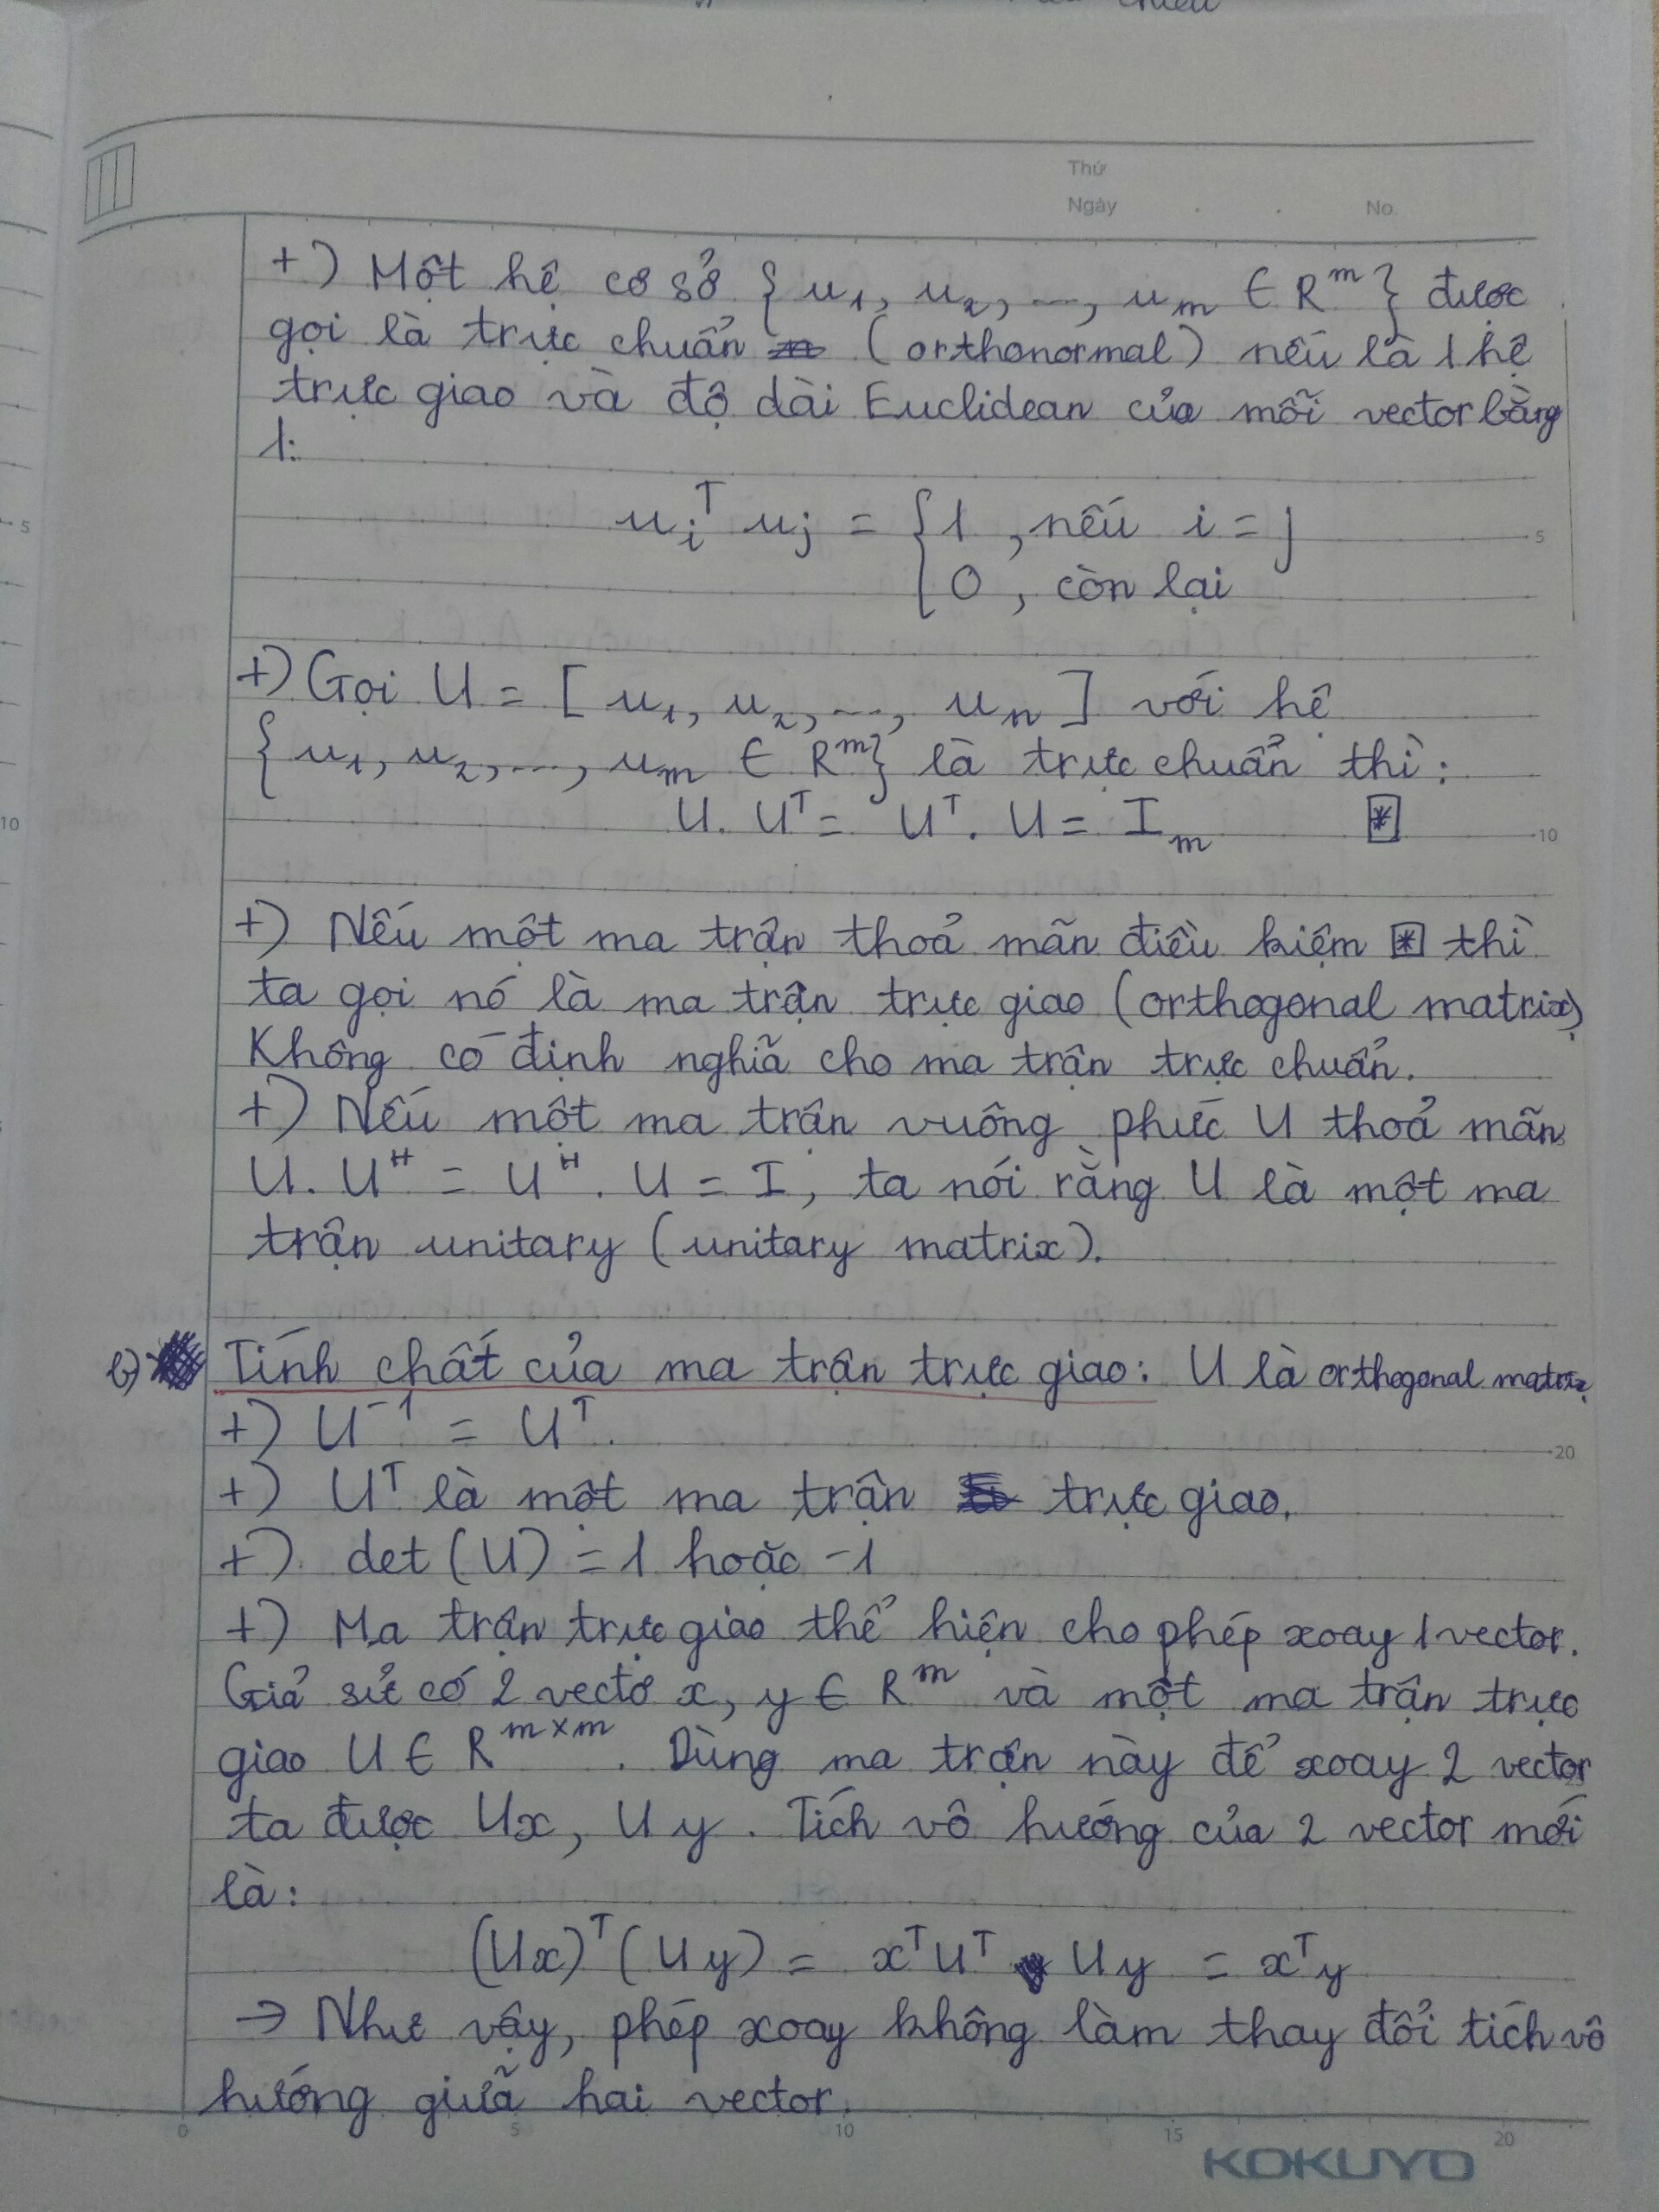 Thứ
Ngày . . No.
+) Một hệ cơ sở {u₁, u₂, ..., uₘ ∈ Rᵐ} được
gọi là trực chuẩn (orthonormal) nếu là 1 hệ
trực giao và độ dài Euclidean của mỗi vector bằng
1:
uᵢᵀ uⱼ = { 1 , nếu i = j
0 , còn lại
5
+) Gọi U = [u₁, u₂, ..., uₘ] với hệ
{u₁, u₂, ..., uₘ ∈ Rᵐ} là trực chuẩn thì:
U. Uᵀ = Uᵀ. U = Iₘ [*]
10
+) Nếu một ma trận thoả mãn điều kiệm [*] thì
ta gọi nó là ma trận trực giao (orthogonal matrix)
Không có định nghĩã cho ma trận trực chuẩn.
+) Nếu một ma trận vuông phức U thoả mãn
U. Uᴴ = Uᴴ. U = I, ta nói rằng U là một ma
trận unitary (unitary matrix).
b) Tính chất của ma trận trực giao: U là orthogonal matrix
+) U⁻¹ = Uᵀ.
20
+) Uᵀ là một ma trận trực giao.
+) det(U) = 1 hoặc -1
+) Ma trận trực giao thể hiện cho phép xoay 1 vector.
Giả sử có 2 vectơ x, y ∈ Rᵐ và một ma trận trực
giao U ∈ Rᵐˣᵐ. Dùng ma trận này để xoay 2 vector
ta được Ux, Uy. Tích vô hướng của 2 vector mới
là:
(Ux)ᵀ(Uy) = xᵀUᵀ Uy = xᵀy
→ Như vậy, phép xoay không làm thay đổi tích vô
hướng giữã hai vector.
0 5 10 15 20
KOKUYO